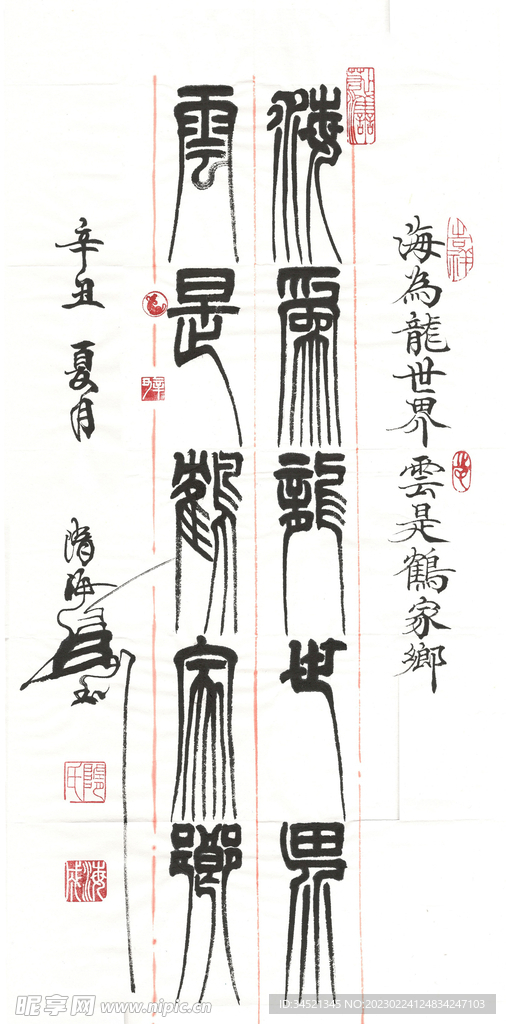 海為龍世界雲是鶴家鄉
海爲龍世界
雲是鶴家鄉
辛丑 夏月 隋海
昵享网 www.nipic.cn
ID:34521345 NO:20230224124834247103